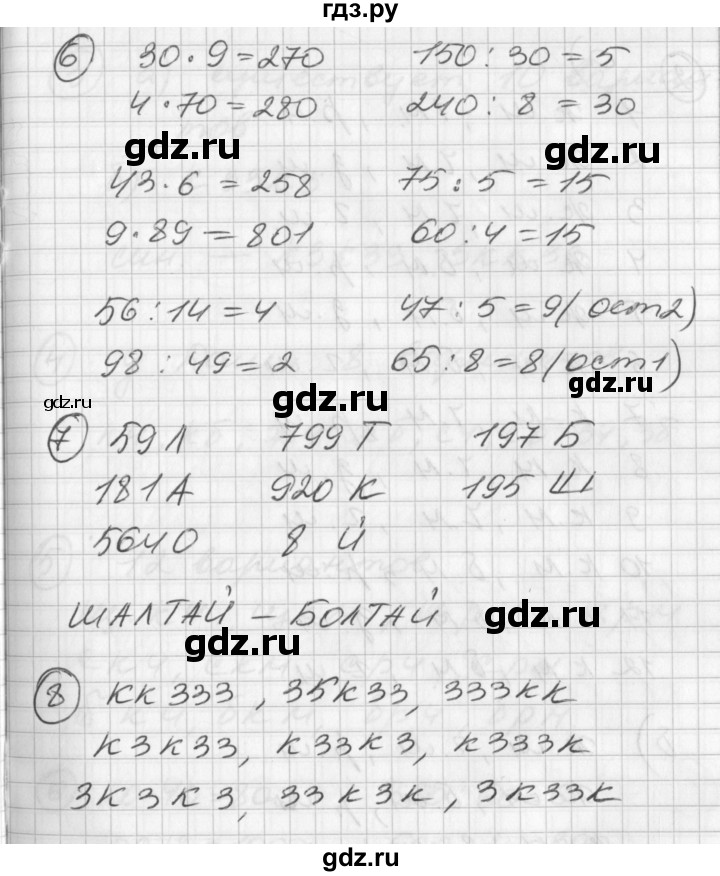 гдз.ру
6 30 · 9 = 270 150 : 30 = 5
4 · 70 = 280 240 : 8 = 30
gdz.ru gdz.ru
43 · 6 = 258 75 : 5 = 15
9 · 89 = 801 60 : 4 = 15
56 : 14 = 4 47 : 5 = 9 (ост 2)
98 : 49 = 2 65 : 8 = 8 (ост 1)
gdz.ru gdz.ru gdz.ru
7 59 Л 799 Т 197 Б
181 А 920 К 195 Ш
564 О 8 Й
ШАЛТАЙ – БОЛТАЙ
gdz.ru gdz.ru
8 КК333, 35К33, 333КК
К3К33, К33К3, К333К
3К3К3, 33К3К, 3К33К
gdz.ru gdz.ru